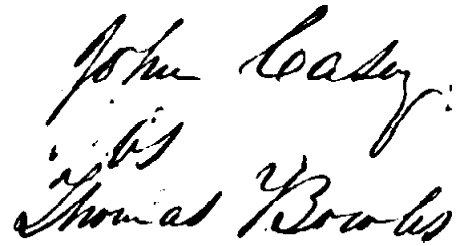 John Casey.
vs
Thomas Bowles